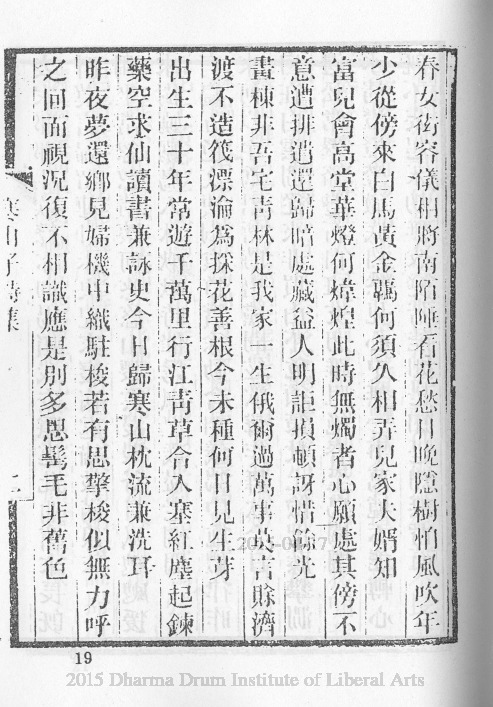 春女衒容儀相將南陌陲看花愁日晚隱樹怕風吹年
少從傍來白馬黃金羈何須久相弄兒家夫婿知
富兒會高堂華燈何煒煌此時無燭者心願處其傍不
意遭排遣還歸暗處藏益人明詎損頓訝惜餘光
畫棟非吾宅靑林是我家一生俄爾過萬事莫言賒濟
渡不造筏漂淪爲採花善根今未種何日見生芽
出生三十年常遊千萬里行江靑草合入塞紅塵起鍊
藥空求仙讀書兼詠史今日歸寒山枕流兼洗耳
昨夜夢還鄉見婦機中織駐梭若有思擎梭似無力呼
之回面視況復不相識應是別多年鬢毛非舊色
寒山子詩集
十二
19
2015 Dharma Drum Institute of Liberal Arts